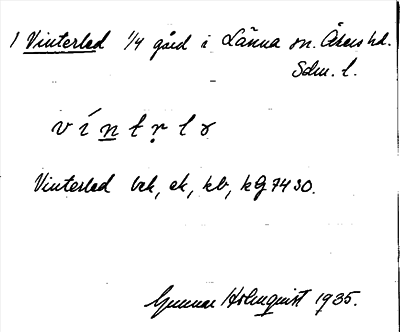 1 Vinterled 1/4 gård i Länna sn. Åkers hd.
Sdm. l.
víntṛlɤ
Vinterled bek, ek, kb, kg 7430.
Gunnar Holmquist 1935.